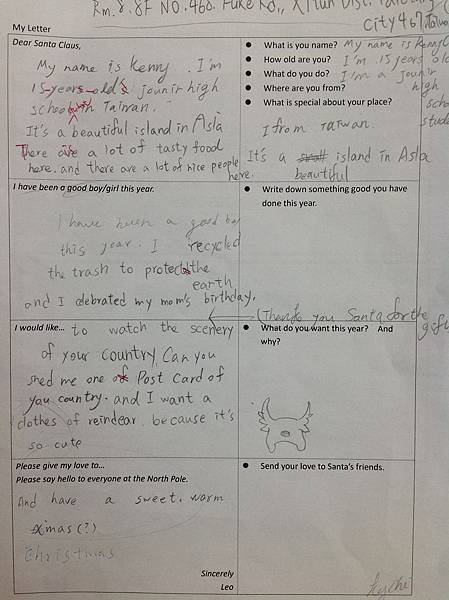 Rm. 8. 8F NO. 460. Fuke Rd., Xitun Dist.
City 407
My Letter
Dear Santa Claus,
My name is Kenny. I'm
15-years-olds jounir high
school in Taiwan.
It's a beautiful island in Asla
There are a lot of tasty food
here. and there are a lot of nice people
here.
What is you name? My name is Kenny C
How old are you? I'm 15 years old
What do you do? I'm a jounir
high
Where are you from?
What is special about your place?
I from Taiwan.
It's a small island in Asla
beautiful
I have been a good boy/girl this year.
I have been a good boy
this year. I recycled
the trash to protect the
earth
and I clebrated my mom's birthday.
Write down something good you have
done this year.
(Thank you Santa for the
gift
I would like... to watch the scenery
of your country. Can you
shed me one of Post Card of
you country. and I want a
clothes of reindear. because it's
so cute
What do you want this year? And
why?
Please give my love to...
Please say hello to everyone at the North Pole.
And have a sweet. warm
Xmas(?)
Christmas
Sincerely
Leo
Send your love to Santa's friends.